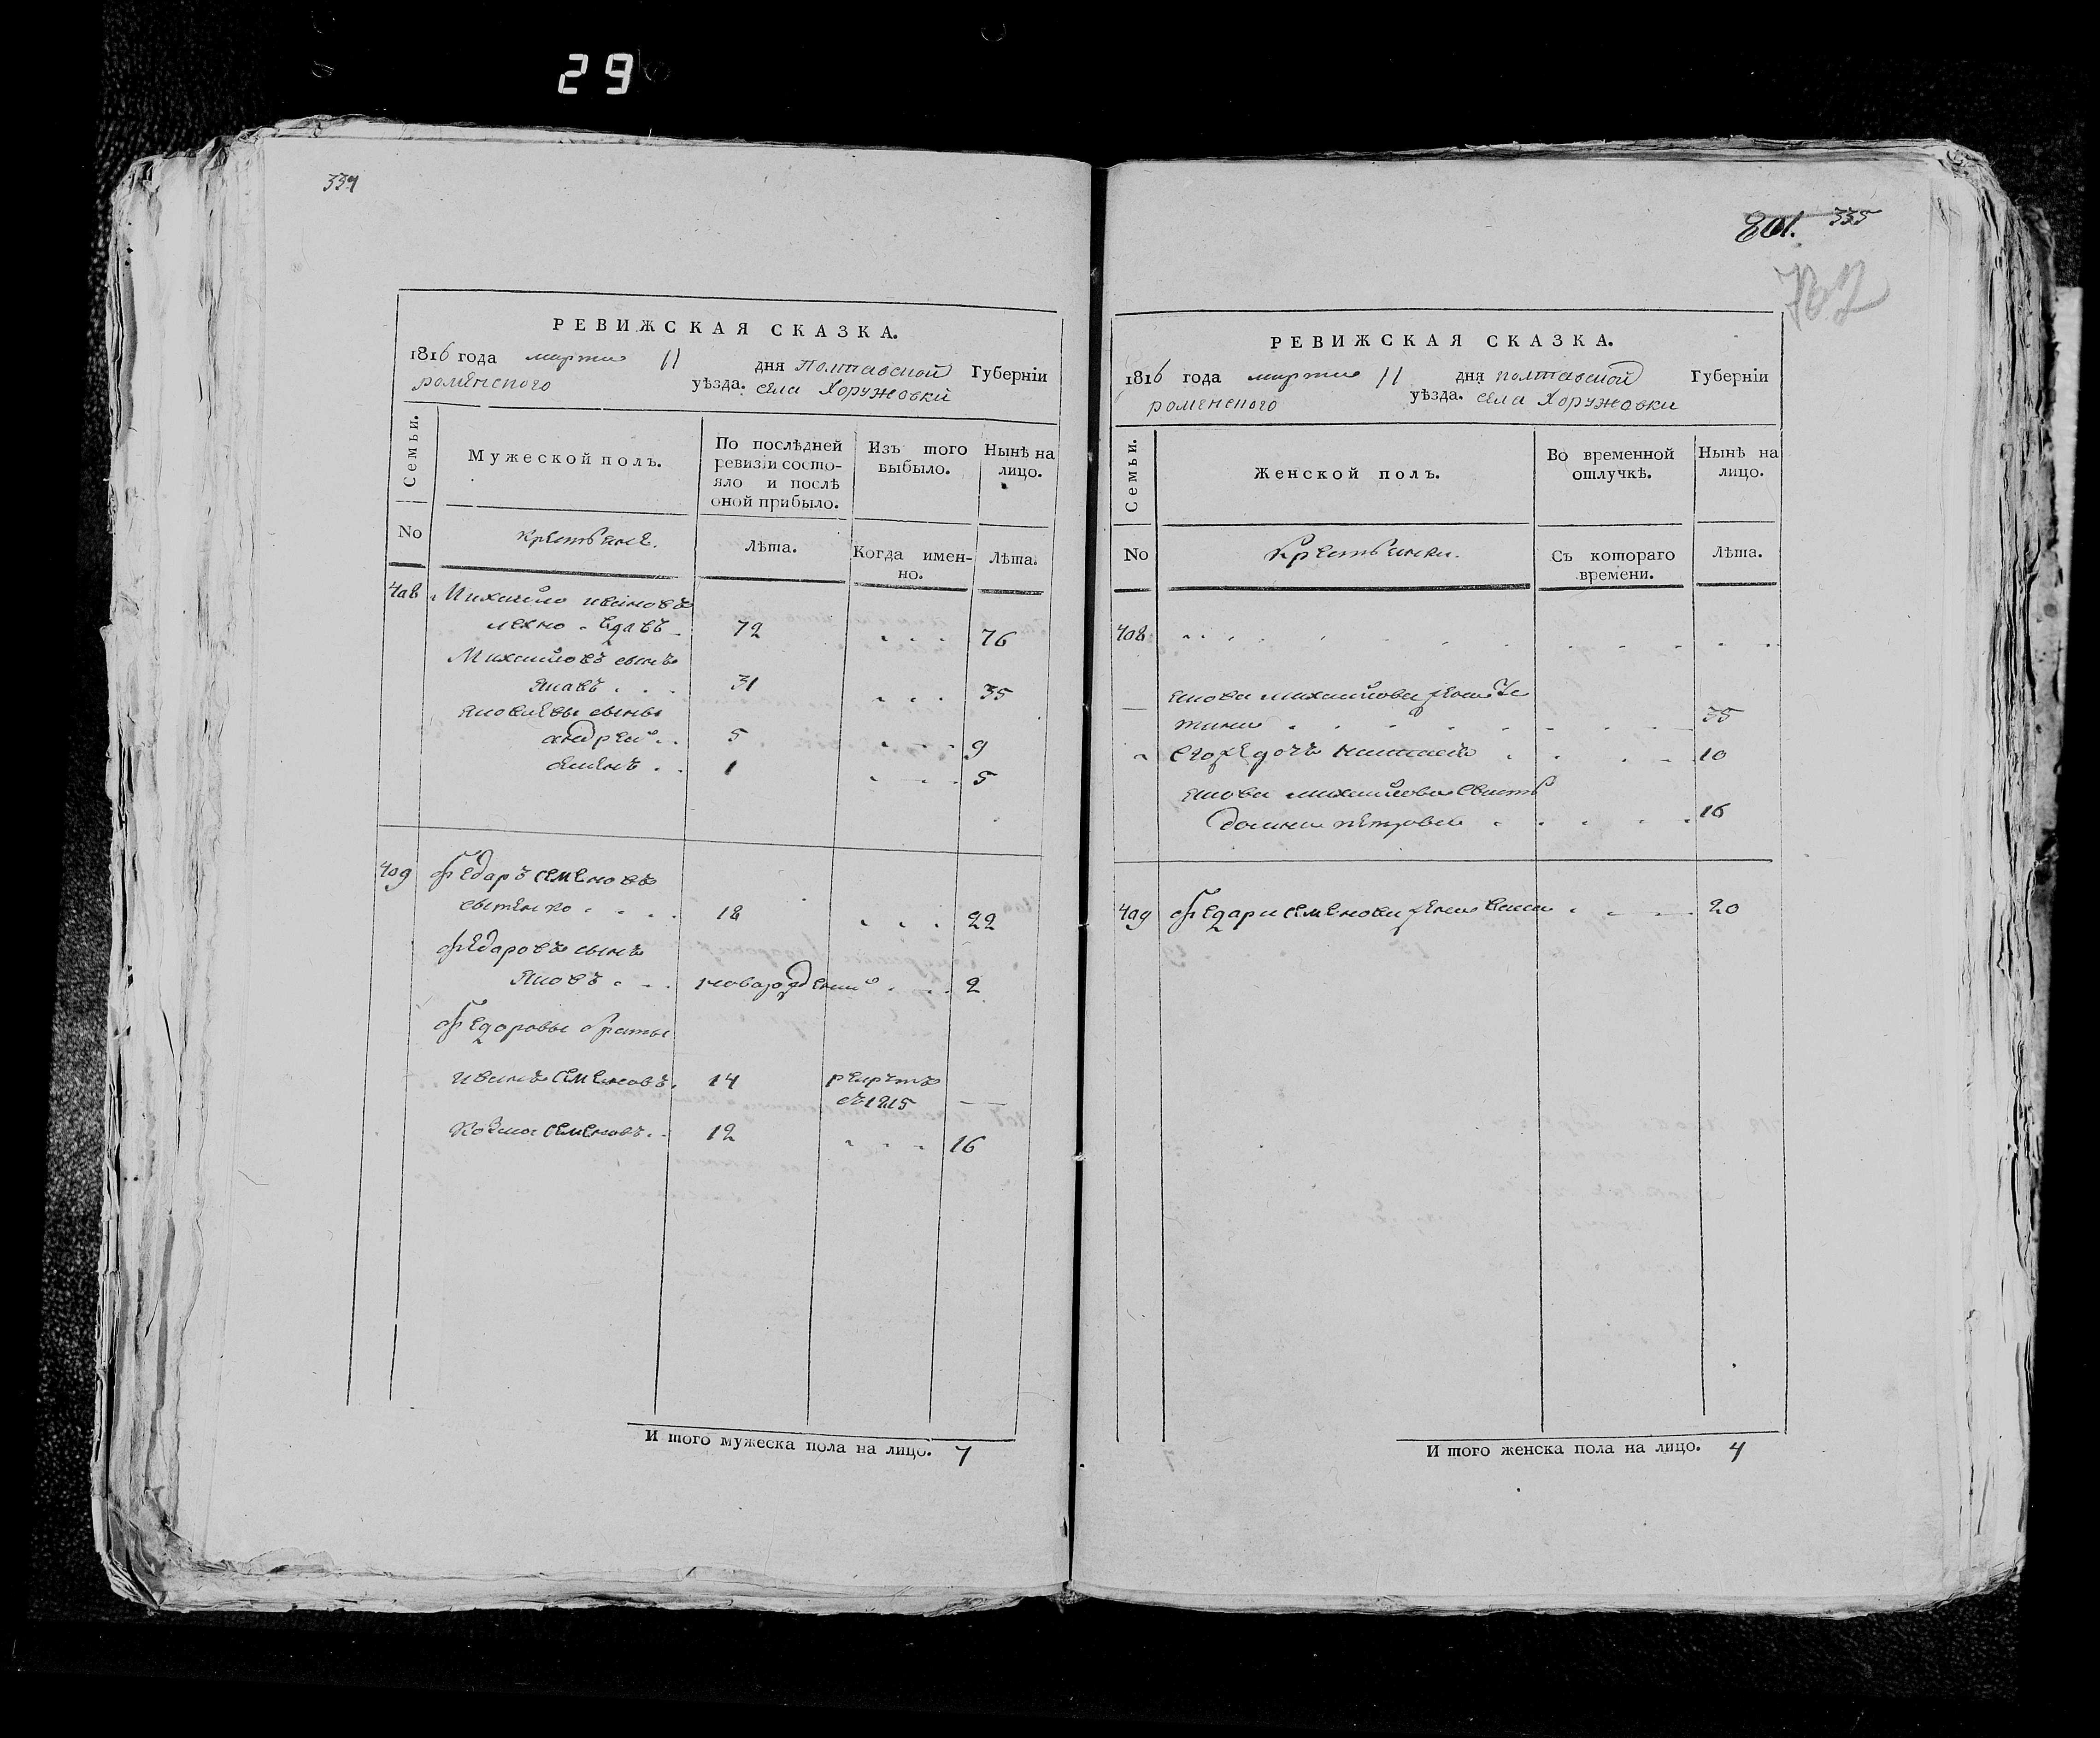 29
334
РЕВИЖСКАЯ СКАЗКА.
1816 года марта 11 дня Полтавской Губерніи
роменского уѣзда. села Хоружовки
Семьи.
Мужеской полъ.
По послѣдней ревизіи состояло и послѣ оной прибыло.
Изъ того выбыло.
Нынѣ на лицо.
No
крестьяне.
Лѣта.
Когда именно.
Лѣта.
408 Михайло ивановъ
вдавъ 72 76
Михайловъ сынъ
Яковъ 31 35
Яковлевы сыны
андрей 5 9
семенъ 1 5
409 Федаръ семеновъ
18 22
Федаровъ сынъ
Яковъ новарождений 2
Федоровы браты
иванъ семеновъ 14 рекрутъ
въ 1815 —
Козма семеновъ 12 16
И того мужеска пола на лицо. 7
801. 335
702
РЕВИЖСКАЯ СКАЗКА.
1816 года марта 11 дня полтавской Губерніи
роменского уѣзда. села Хоружовки
Семьи.
Женской полъ.
Во временной отлучкѣ.
Нынѣ на лицо.
No
Крестьянки.
Съ котораго времени.
Лѣта.
408
Якова михайлова жена
35
его дочь наталія 10
Якова михайлова
домна петрова 16
409 Федара семенова жена 20
И того женска пола на лицо. 4